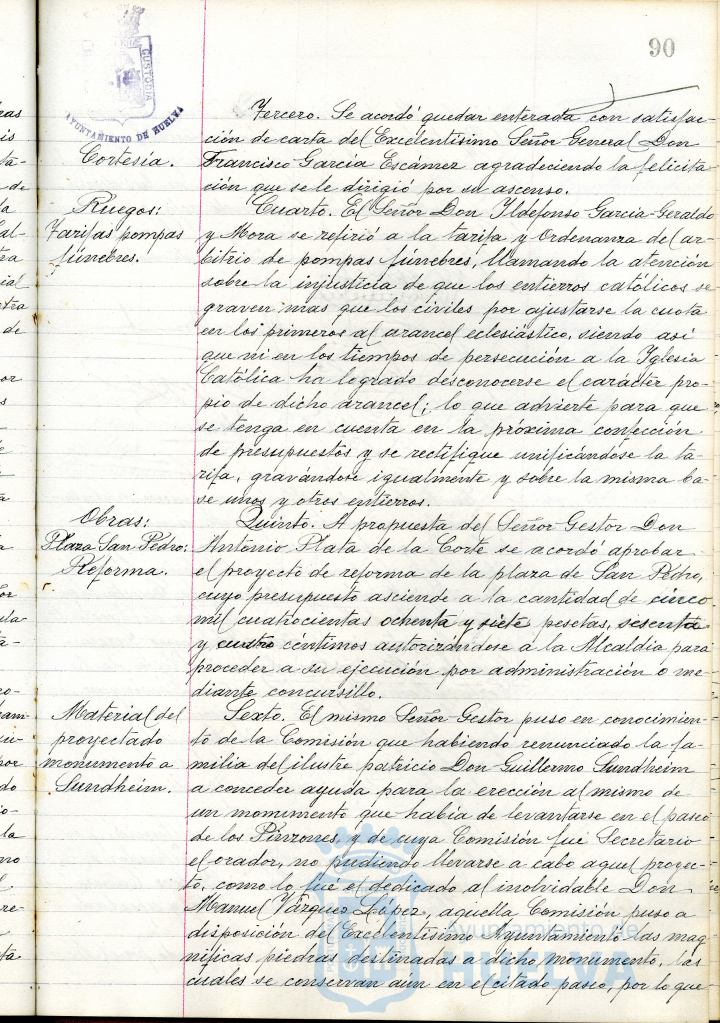 90
CUSTODIA
AYUNTAMIENTO DE HUELVA
Cortesía.
Tercero. Se acordó quedar enterada con satisfac-
ción de carta del Excelentísimo Señor General Don
Francisco García Escámez agradeciendo la felicita-
ción que se le dirigió por su ascenso.
Ruegos:
Tarifas pompas
fúnebres.
Cuarto. El Señor Don Ildefonso García-Geraldo
y Mora se refirió a la tarifa y Ordenanza del ar-
bitrio de pompas fúnebres, llamando la atención
sobre la injusticia de que los entierros católicos se
graven mas que los civiles por ajustarse la cuota
en los primeros al arancel eclesiástico, siendo así
que ni en los tiempos de persecución a la Yglesia
Católica ha logrado desconocerse el carácter pro-
pio de dicho arancel; lo que advierte para que
se tenga en cuenta en la próxima confección
de presupuestos y se rectifique unificándose la ta-
rifa, gravándose igualmente y sobre la misma ba-
se unos y otros entierros.
Obras:
Plaza San Pedro:
Reforma.
Quinto. A propuesta del Señor Gestor Don
Antonio Plata de la Corte se acordó aprobar
el proyecto de reforma de la plaza de San Pedro,
cuyo presupuesto asciende a la cantidad de cinco
mil cuatrocientas ochenta y siete pesetas, sesenta
y cuatro céntimos autorizándose a la Alcaldía para
proceder a su ejecución por administración o me-
diante concursillo.
Material del
proyectado
monumento a
Sundheim.
Sexto. El mismo Señor Gestor puso en conocimien-
to de la Comisión que habiendo renunciado la fa-
milia del ilustre patricio Don Guillermo Sundheim
a conceder ayuda para la erección al mismo de
un monumento que había de levantarse en el paseo
de los Pinzones, y de cuya Comisión fué Secretario
el orador, no pudiendo llevarse a cabo aquel proyec-
to, como lo fué el dedicado al inolvidable Don
Manuel Vázquez López, aquella Comisión puso a
disposición del Excelentísimo Ayuntamiento las mag-
níficas piedras destinadas a dicho monumento, las
cuales se conservan aún en el citado paseo, por lo que
Ayuntamiento de
HUELVA